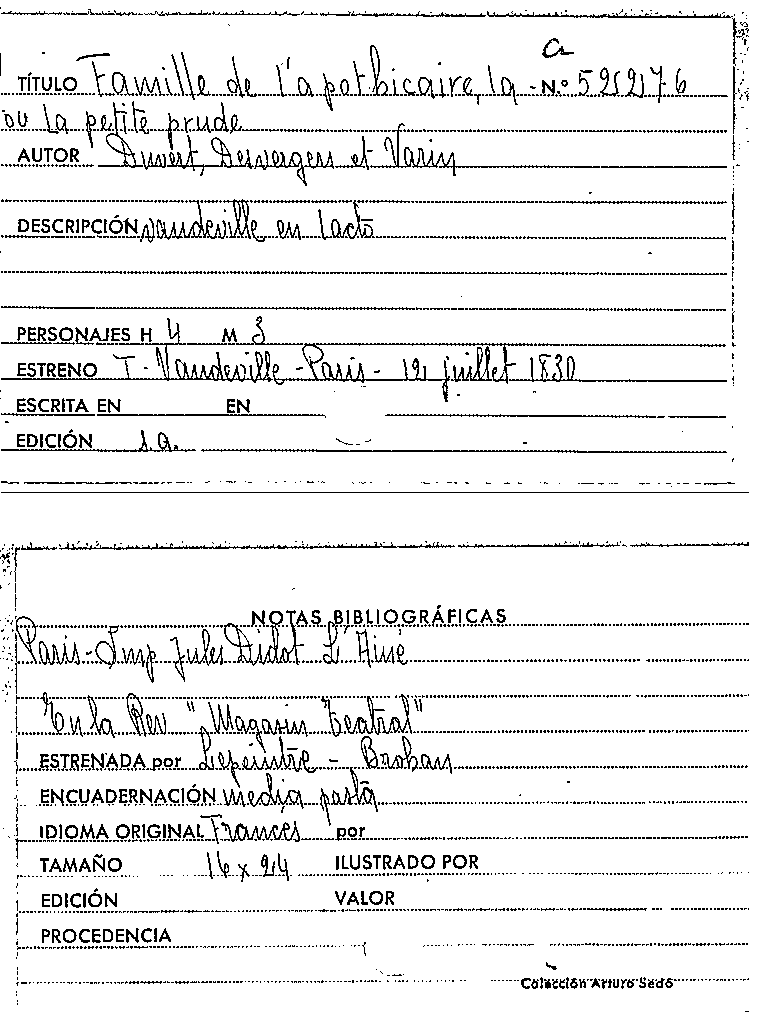 a
TÍTULO Famille de l'apothicaire, la - N.º 52217-6
ou la petite prude
AUTOR Duvert, Desvergers et Varin
DESCRIPCIÓN vaudeville en 1 acto
PERSONAJES H 4 M 3
ESTRENO T. Vaudeville - Paris - 12 juillet 1830
ESCRITA EN EN
EDICIÓN s.a.
NOTAS BIBLIOGRÁFICAS
Paris - Imp Jules Didot L'Ainé
En la Rev "Magasin Teatral"
ESTRENADA por Lepeintre - Brohan
ENCUADERNACIÓN media pasta
IDIOMA ORIGINAL Frances por
TAMAÑO 16 x 24 ILUSTRADO POR
EDICIÓN VALOR
PROCEDENCIA
Colección Arturo Sedó